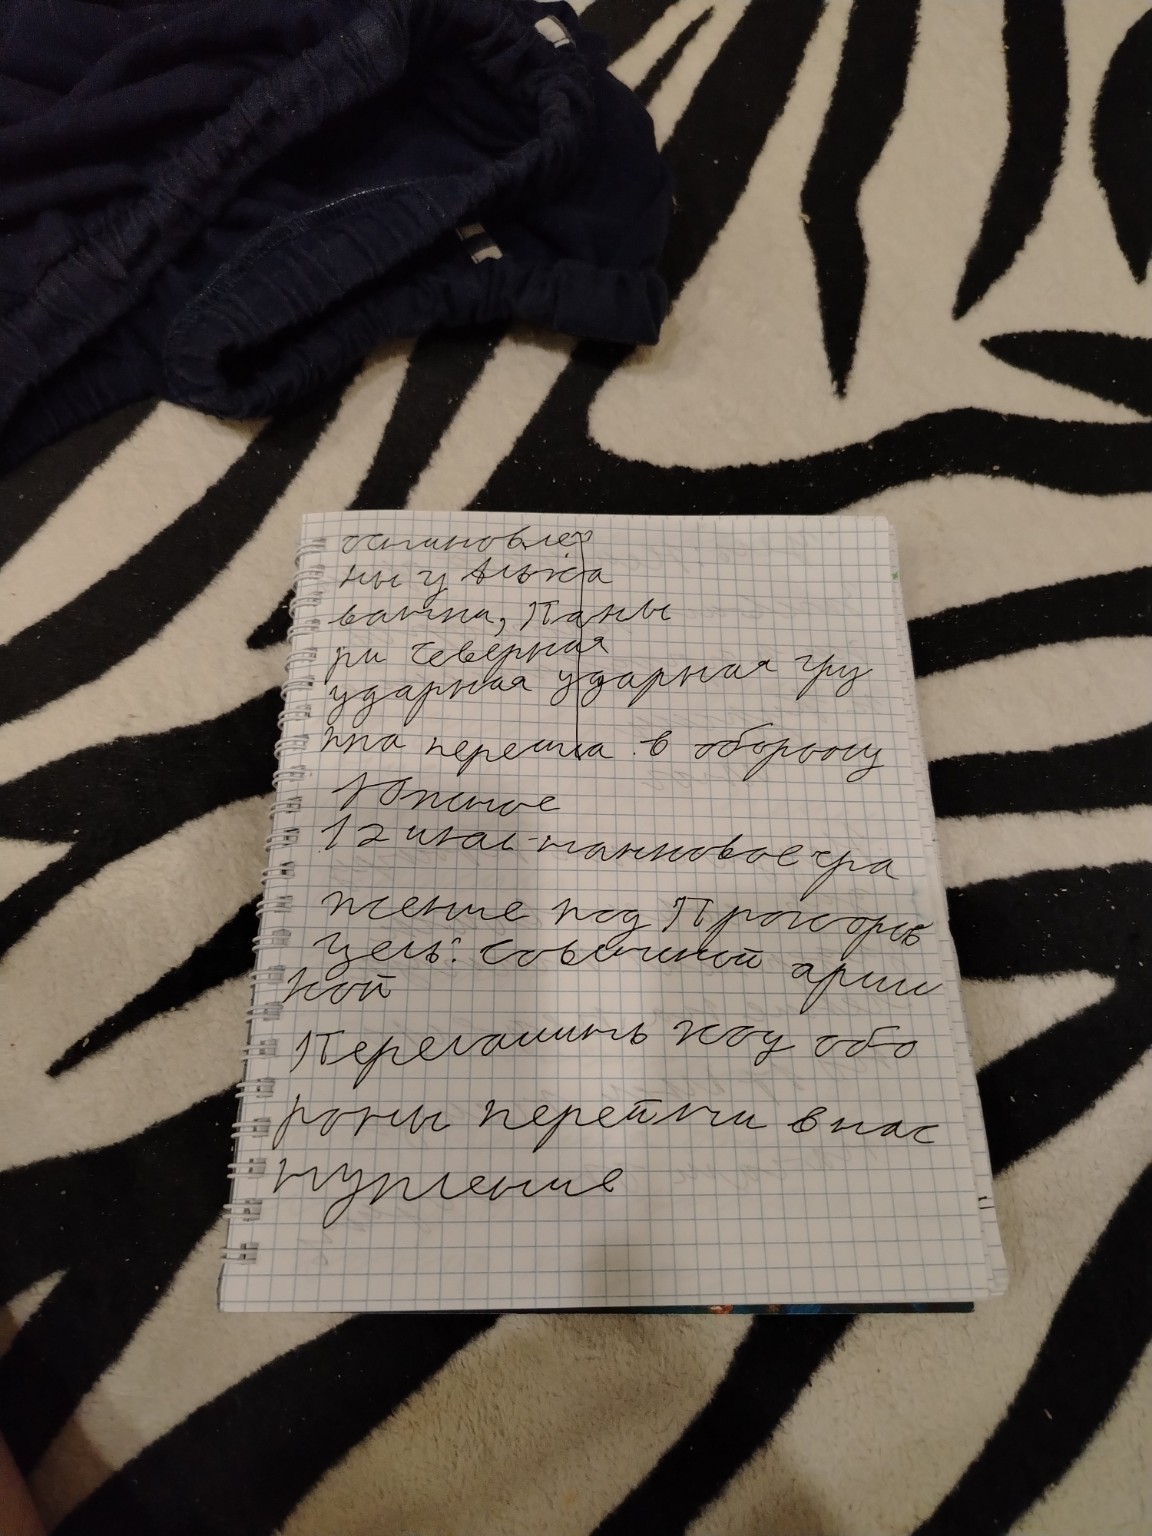 остановле
ны у Ольхо
ватки, Поны
ри Северная
ударная ударная гру
ппа перешла в оборону
Южное
12 июл танковое сра
жение под Прохоров
цель: советской арми
кой
Перемолить ходу обо
роны перейти в нас
тупление